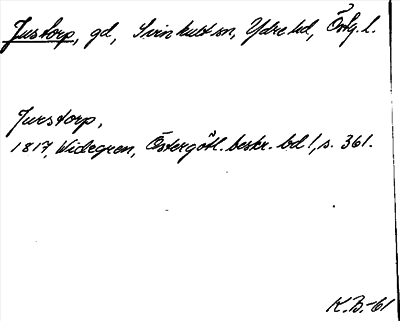 Justorp, gd, Svinhult sn, Ydre hd, Östg. l.
Jurstorp,
1817, Widegren, Östergötl. beskr. bd 1, s. 361.
K.B.-61